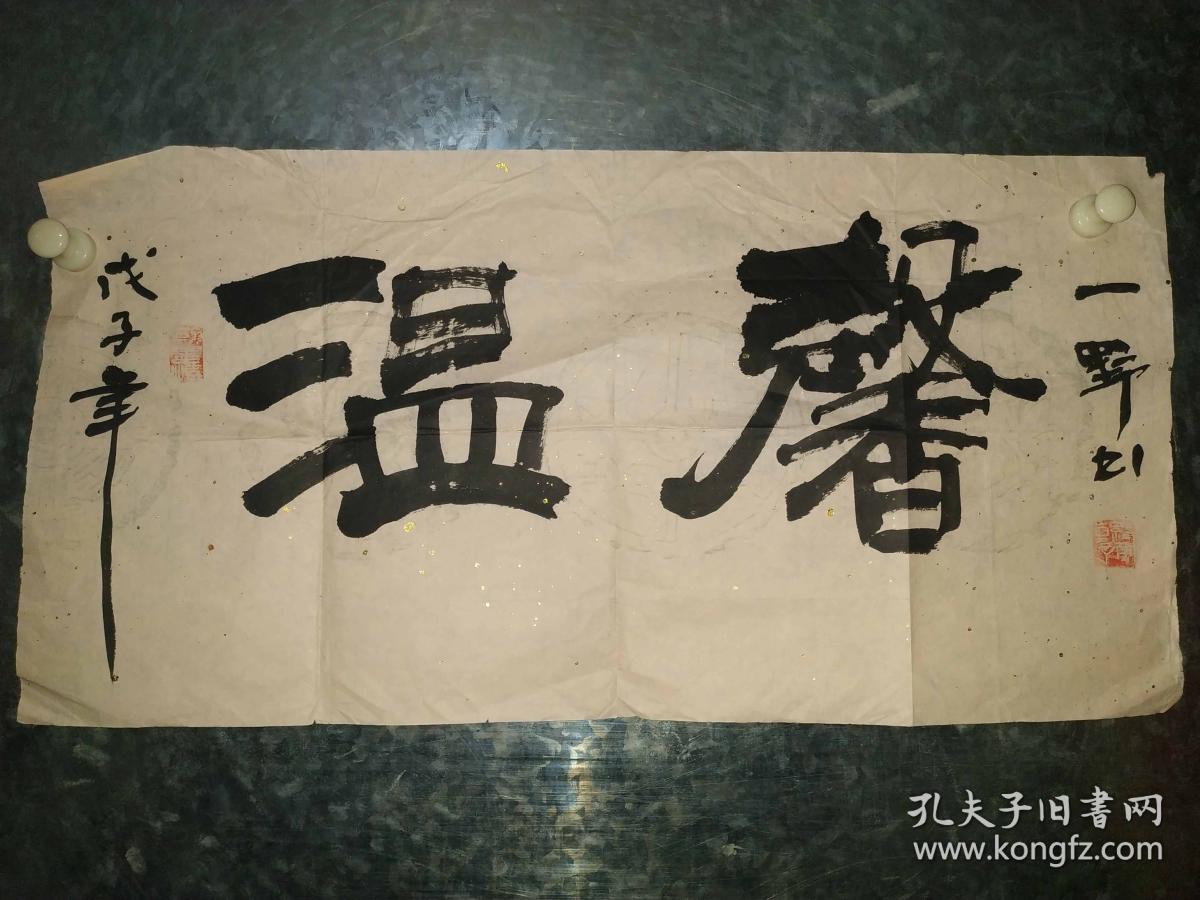 戊子年
温馨
一野书
孔夫子旧書网
www.kongfz.com